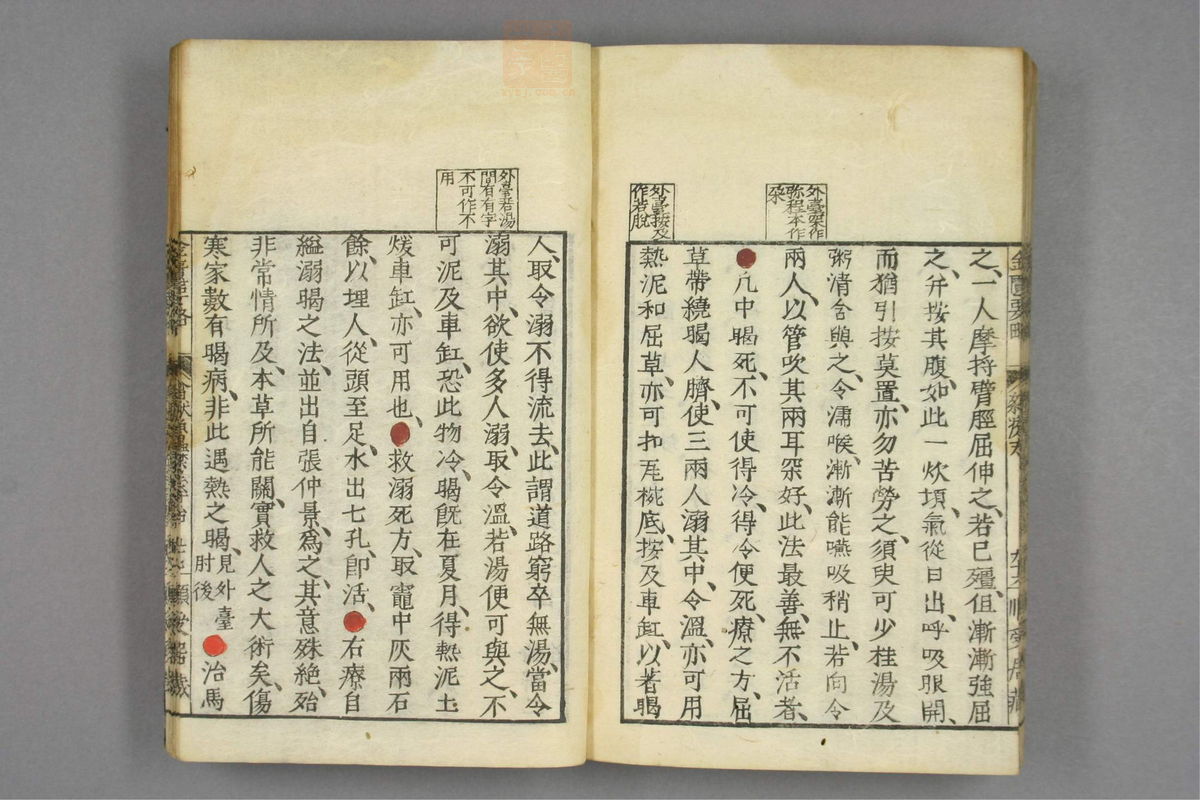 外臺罙作
聡程本作
罙
外臺按及
作若脫
金匱要略
雜療方
之、一人摩捋臂脛屈伸之、若已殭、但漸漸強屈
之、并按其腹、如此一炊頃、氣從口出、呼吸眼開、
而猶引按莫置、亦勿苦勞之、須臾可少桂湯及
粥清含與之、令濡喉、漸漸能嚥吸稍止、若向令
兩人、以管吹其兩耳罙好、此法最善、無不活者、
●凡中暍死、不可使得冷、得令便死、療之方、屈
草帶繞暍人臍、使三兩人溺其中、令溫、亦可用
熱泥和屈草、亦可扣瓦椀底、按及車缸、以著暍
外臺若湯
間有有字
不可作不
用
人、取令溺不得流去、此謂道路窮卒無湯、當令
溺其中、欲使多人溺、取令溫、若湯便可與之、不
可泥及車缸、恐此物冷、暍旣在夏月、得熱泥土
煖車缸、亦可用也、●救溺死方、取竈中灰兩石
餘、以埋人、從頭至足、水出七孔、卽活、●右療自
縊溺暍之法、並出自張仲景、爲之、其意殊絶、殆
非常情所及、本草所能關、實救人之大術矣、傷
寒家數有暍病、非此遇熱之暍、見外臺肘後●治馬